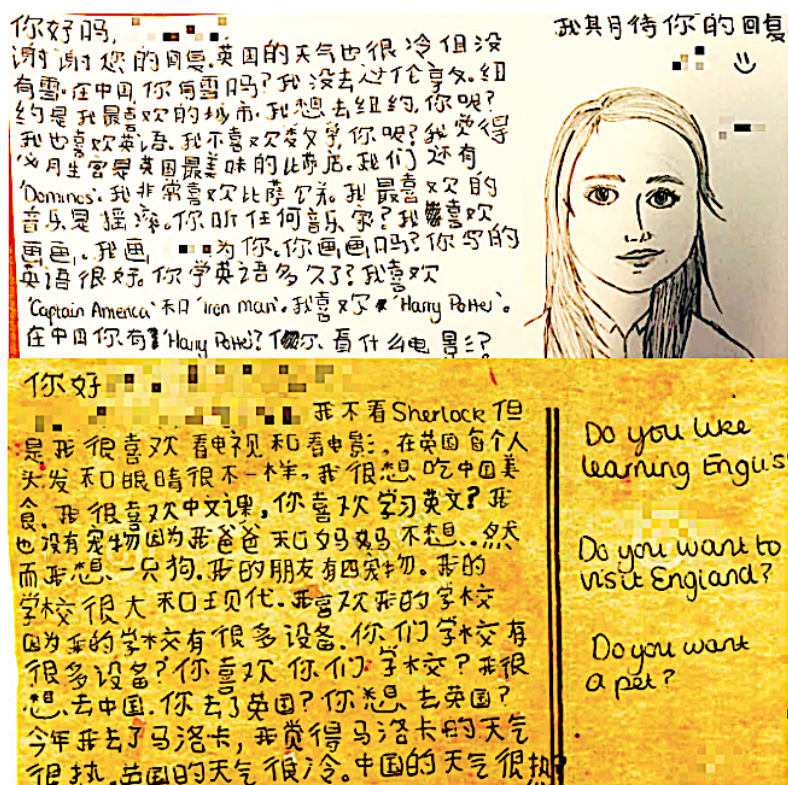 你好吗,
谢谢您的回复.英国的天气也很冷但没
有雪.在中国,你有雪吗?我没去过伦敦.纽
约是我最喜欢的城市.我想去纽约,你呢?
我也喜欢英语.我不喜欢数学,你呢?我觉得
必胜客是英国最美味的比萨店.我们还有
'Dominos'.我非常喜欢比萨.我最喜欢的
音乐是摇滚.你听任何音乐?我喜欢
画画.我画 为你.你画画吗?你写的
英语很好.你学英语多久了?我喜欢
'Captain America'和'Iron man'.我喜欢'Harry Potter'.
在中国你有'Harry Potter'?你看什么电影?
我期待你的回复
你好
我不看Sherlock但
是我很喜欢看电视和看电影,在英国每个人
头发和眼睛很不一样.我很想吃中国美
食.我很喜欢中文课,你喜欢学习英文?我
也没有宠物因为我爸爸和妈妈不想..然
而我想一只狗.我的朋友有四宠物.我的
学校很大和现代.我喜欢我的学校
因为我的学校有很多设备.你们学校有
很多设备?你喜欢你们学校?我很
想去中国.你去了英国?你想去英国?
今年我去了马洛卡,我觉得马洛卡的天气
很热.英国的天气很冷。中国的天气很热?
Do you like
learning Englis
Do you want to
visit England?
Do you want
a pet?